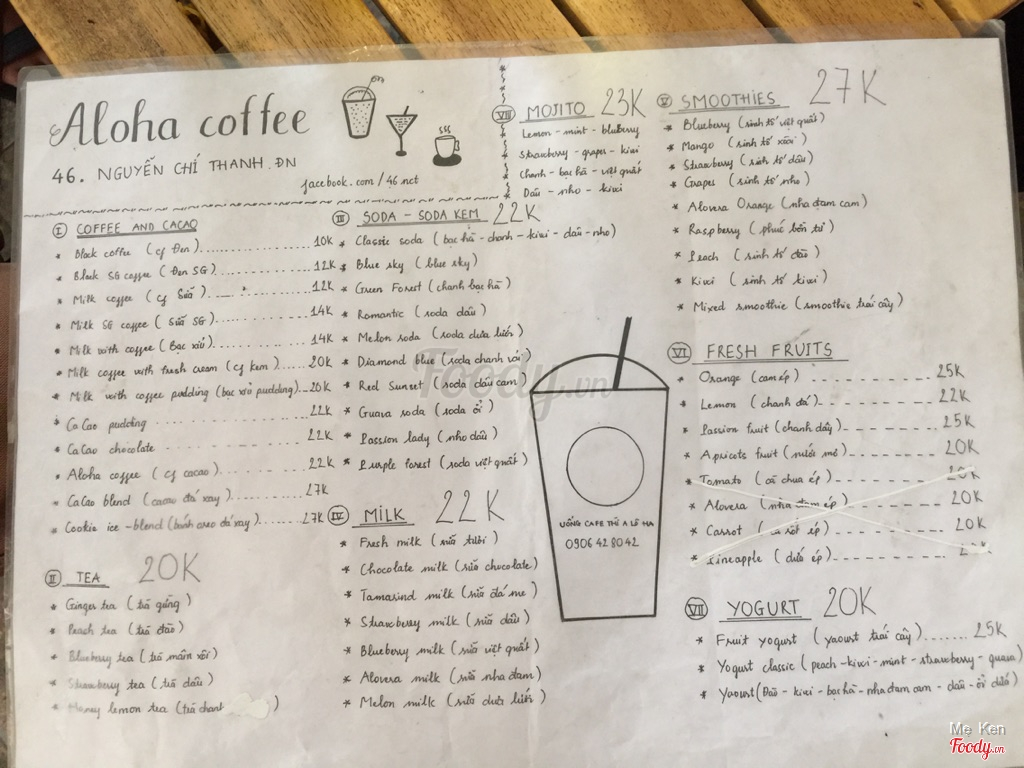 Aloha coffee
46. NGUYỄN CHÍ THANH.ĐN
facebook.com/46net
I COFFEE AND CACAO
* Black coffee (cf Đen) 10K
* Black SG coffee (Đen SG) 12K
* Milk coffee (cf Sữa) 12K
* Milk SG coffee (Sữa SG) 14K
* Milk with coffee (Bạc xỉu) 14K
* Milk coffee with fresh cream (cf kem) 20K
* Milk with coffee pudding (bạc xỉu pudding) 20K
* CaCao pudding 22K
* CaCao chocolate 22K
* Aloha coffee (cf cacao) 22K
* CaCao blend (cacao đá xay) 27K
* Cookie ice-blend (bánh oreo đá xay) 27K
II TEA 20K
* Ginger tea (trà gừng)
* Peach tea (trà đào)
* Blueberry tea (trà mâm xôi)
* Strawberry tea (trà dâu)
* Honey lemon tea (trà chanh
III SODA - SODA KEM 22K
* Classic soda (bạc hà - chanh - kiwi - dâu - nho)
* Blue sky (blue sky)
* Green Forest (chanh bạc hà)
* Romantic (soda dâu)
* Melon soda (soda dưa lưới)
* Diamond blue (soda chanh
* Red Sunset (soda dâu cam)
* Guava soda (soda ổi)
* Passion lady (nho dâu)
* Purple forest (soda việt quất)
IV MILK 22K
* Fresh milk (sữa tươi)
* Chocolate milk (sữa chocolate)
* Tamarind milk (sữa đá me)
* Strawberry milk (sữa dâu)
* Blueberry milk (sữa việt quất)
* Alovera milk (sữa nha đam)
* Melon milk (sữa dưa lưới)
VII MOJITO 23K
Lemon - mint - bluberry
Strawberry - grapes - kiwi
Chanh - bạc hà - việt quất
Dâu - nho - kiwi
UỐNG CAFE THÌ A LÔ HA
0906 42 80 42
V SMOOTHIES 27K
* Blueberry (sinh tố việt quất)
* Mango (sinh tố xoài)
* Strawberry (sinh tố dâu)
* Grapes (sinh tố nho)
* Alovera Orange (nha đam cam)
* Raspberry (phúc bồn tử)
* Peach (sinh tố đào)
* Kiwi (sinh tố kiwi)
* Mixed smoothie (smoothie trái cây)
VI FRESH FRUITS
* Orange (cam ép) 25K
* Lemon (chanh đá) 22K
* Passion fruit (chanh dây) 25K
* Apricots fruit (nước mơ) 20K
* Tomato (cà chua ép) 20K
* Alovera (nha đam ép) 20K
* Carrot (cà rốt ép) 20K
* Pineapple (dứa ép)
VII YOGURT 20K
* Fruit yogurt (yaourt trái cây) 25K
* Yogurt classic (peach - kiwi - mint - strawberry - guava)
* Yaourt (Đào - kiwi - bạc hà - nha đam cam - dâu - ổi dứa)
Foody.vn
Mẹ Ken
Foody.vn